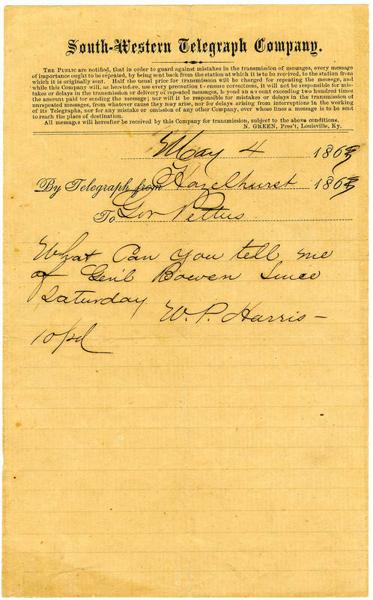 South-Western Telegraph Company.
THE PUBLIC are notified, that in order to guard against mistakes in the transmission of messages, every message
of importance ought to be repeated, by being sent back from the station at which it is to be received, to the station from
which it is originally sent. Half the usual price for transmission will be charged for repeating the message, and
while this Company will, as heretofore, use every precaution to ensure corrections, it will not be responsible for mis-
takes or delays in the transmission or delivery of repeated messages, beyond an amount exceeding two hundred times
the amount paid for sending the message; nor will it be responsible for mistakes or delays in the transmission of
unrepeated messages, from whatever cause they may arise, nor for delays arising from interruptions in the working
of its Telegraphs, nor for any mistake or omission of any other Company, over whose lines a message is to be sent
to reach the place of destination.
All messages will hereafter be received by this Company for transmission, subject to the above conditions.
N. GREEN, Pres't, Louisville, Ky.
May 4 1863
By Telegraph from Hazelhurst 1863
To Gov Pettus
What can you tell me
of Genl Bowen since
Saturday
W. P. Harris
10 pd